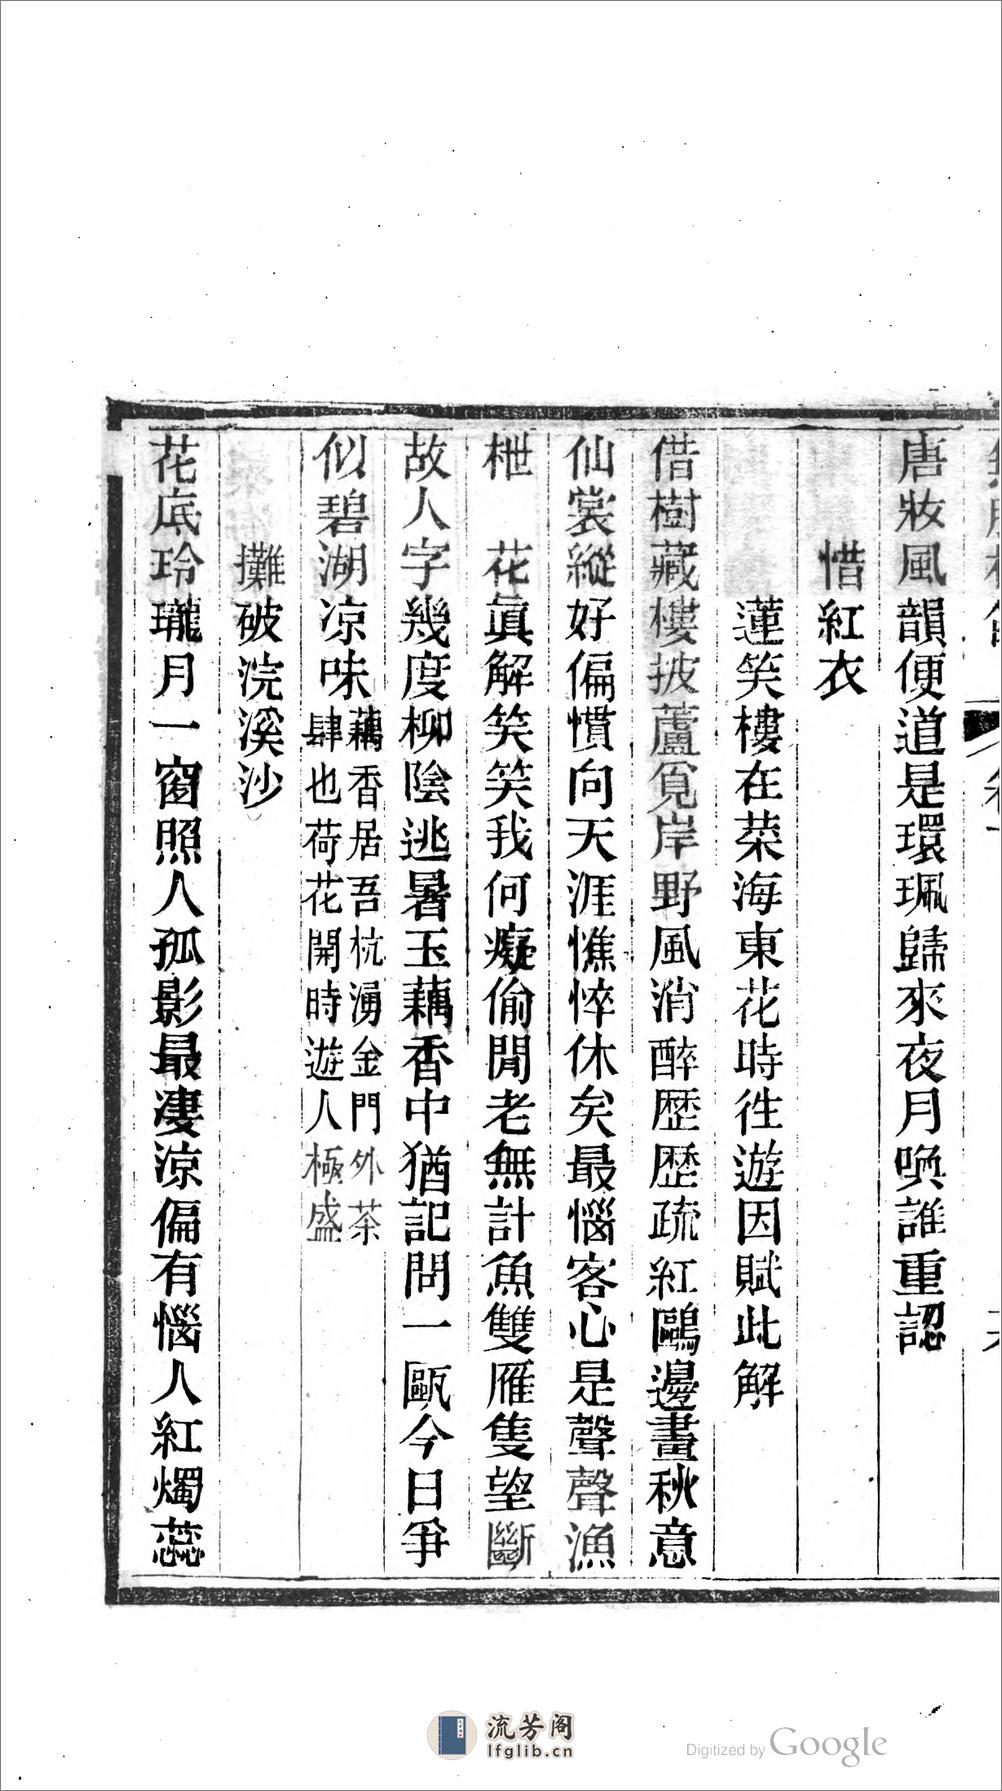 唐妝風韻便道是環珮歸來夜月喚誰重認
惜紅衣
蓮笑樓在棻海東花時徃遊因賦此解
借樹藏樓披蘆覓岸野風消醉歷歷疏紅鷗邊畫秋意
仙裳縱好偏慣向天涯憔悴休矣最惱客心是聲聲漁
枻　花眞解笑笑我何癡偷閒老無計魚雙雁隻望斷
故人字幾度柳陰逃暑玉藕香中猶記問一甌今日爭
似碧湖凉味藕香居吾杭湧金門外茶
肆也荷花開時遊人極盛
攤破浣溪沙
花底玲瓏月一窗照人孤影最凄涼偏有惱人紅燭蕊
流芳阁
lfglib.cn
Digitized by Google